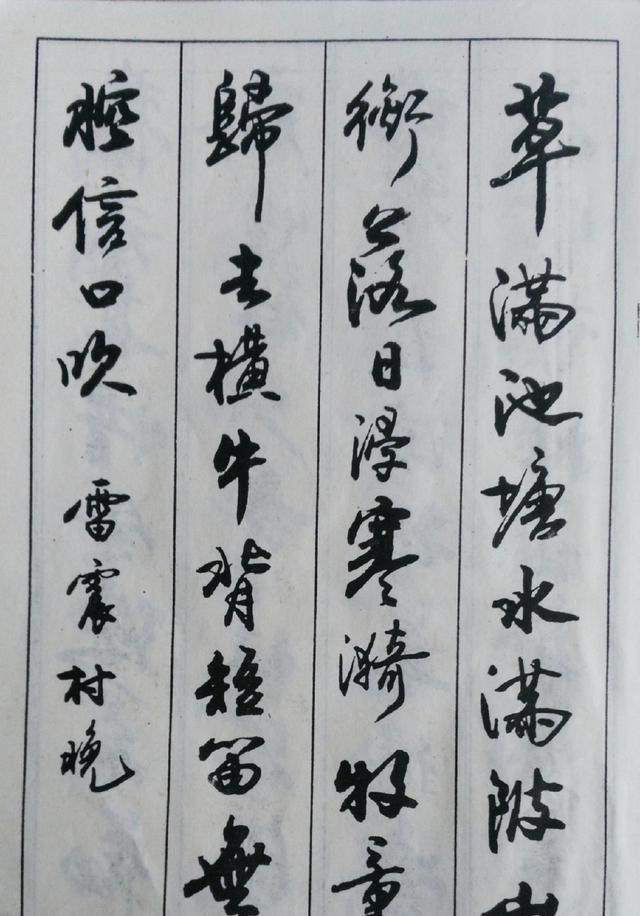 草滿池塘水滿陂山
銜落日浸寒漪牧童
歸去橫牛背短笛無
腔信口吹 雷震村晚